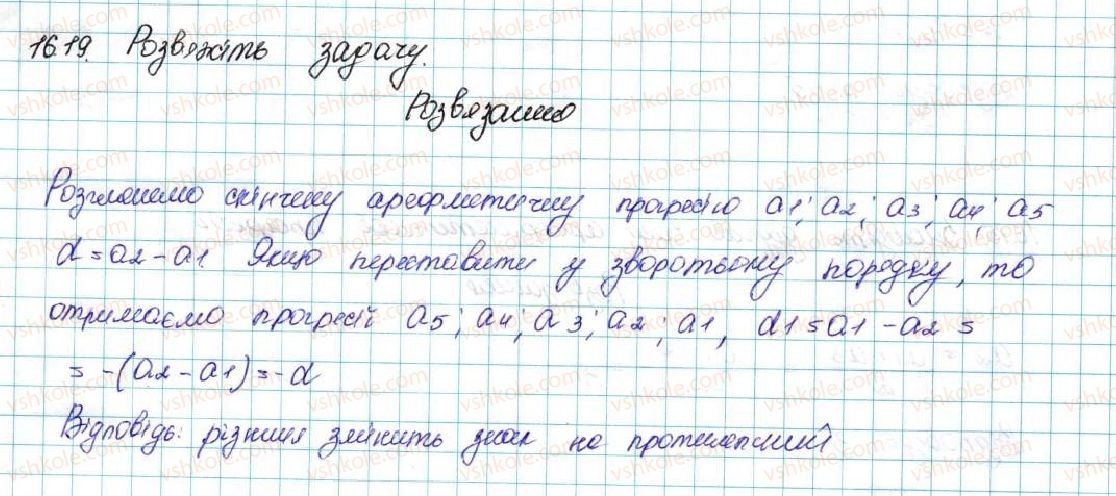 1619. Розвяжіть задачу.
Розвязання
Розглянемо скінчену арефметичну прогресію a1; a2; a3; a4; a5
d = a2 - a1 Якщо переставити у зворотьому порядку, то
отримаємо прогресії a5; a4; a3; a2; a1, d1 = a1 - a2 =
= -(a2 - a1) = -d
Відповідь: різниця змінить знак на протилепний